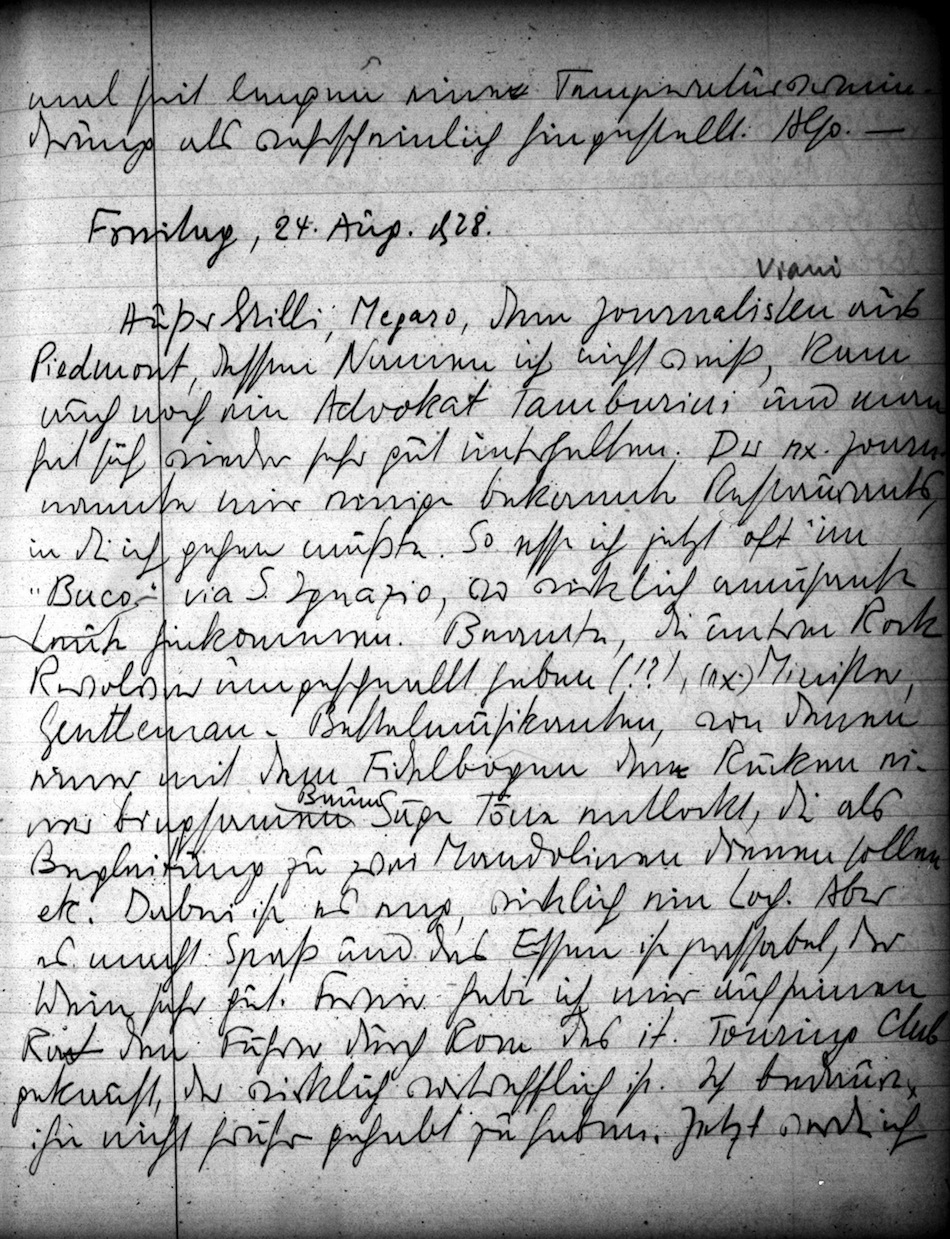 mal seit langem eine Temperaturvermin-
derung als wahrscheinlich hingestellt. Also. —
Freitag, 24. Aug. 28.
Viani
Außer Grilli, Megaro, dem Journalisten aus
Piedmont, dessen Namen ich nicht weiß, kam
auch noch ein Advokat Tamburini und man
hat sich wieder sehr gut unterhalten. Der ex. Journ.
nannte mir einige bekannte Restaurants,
in die ich gehen müßte. So esse ich jetzt oft im
"Buco" via S. Ignazio, wo wirklich amüsante
Leute hinkommen. Beamte, die unterm Rock
Revolver umgeschnallt haben (!?), (ex.) Minister,
Gentleman - Bettelmusikanten, von denen
einer mit dem Fidelbogen dem Rücken ei-
ner biegsamen Baum Säge Töne entlockt, die als
Begleitung zu zwei Mandolinen dienen sollen
etc. Dabei ist es eng, wirklich ein Loch. Aber
es macht Spaß und das Essen ist passabel, der
Wein sehr gut. Ferner habe ich mir auf seinen
Rat den Führer durch Rom des it. Touring Club
gekauft, der wirklich vortrefflich ist. Ich bedaure,
ihn nicht früher gehabt zu haben. Jetzt werde ich